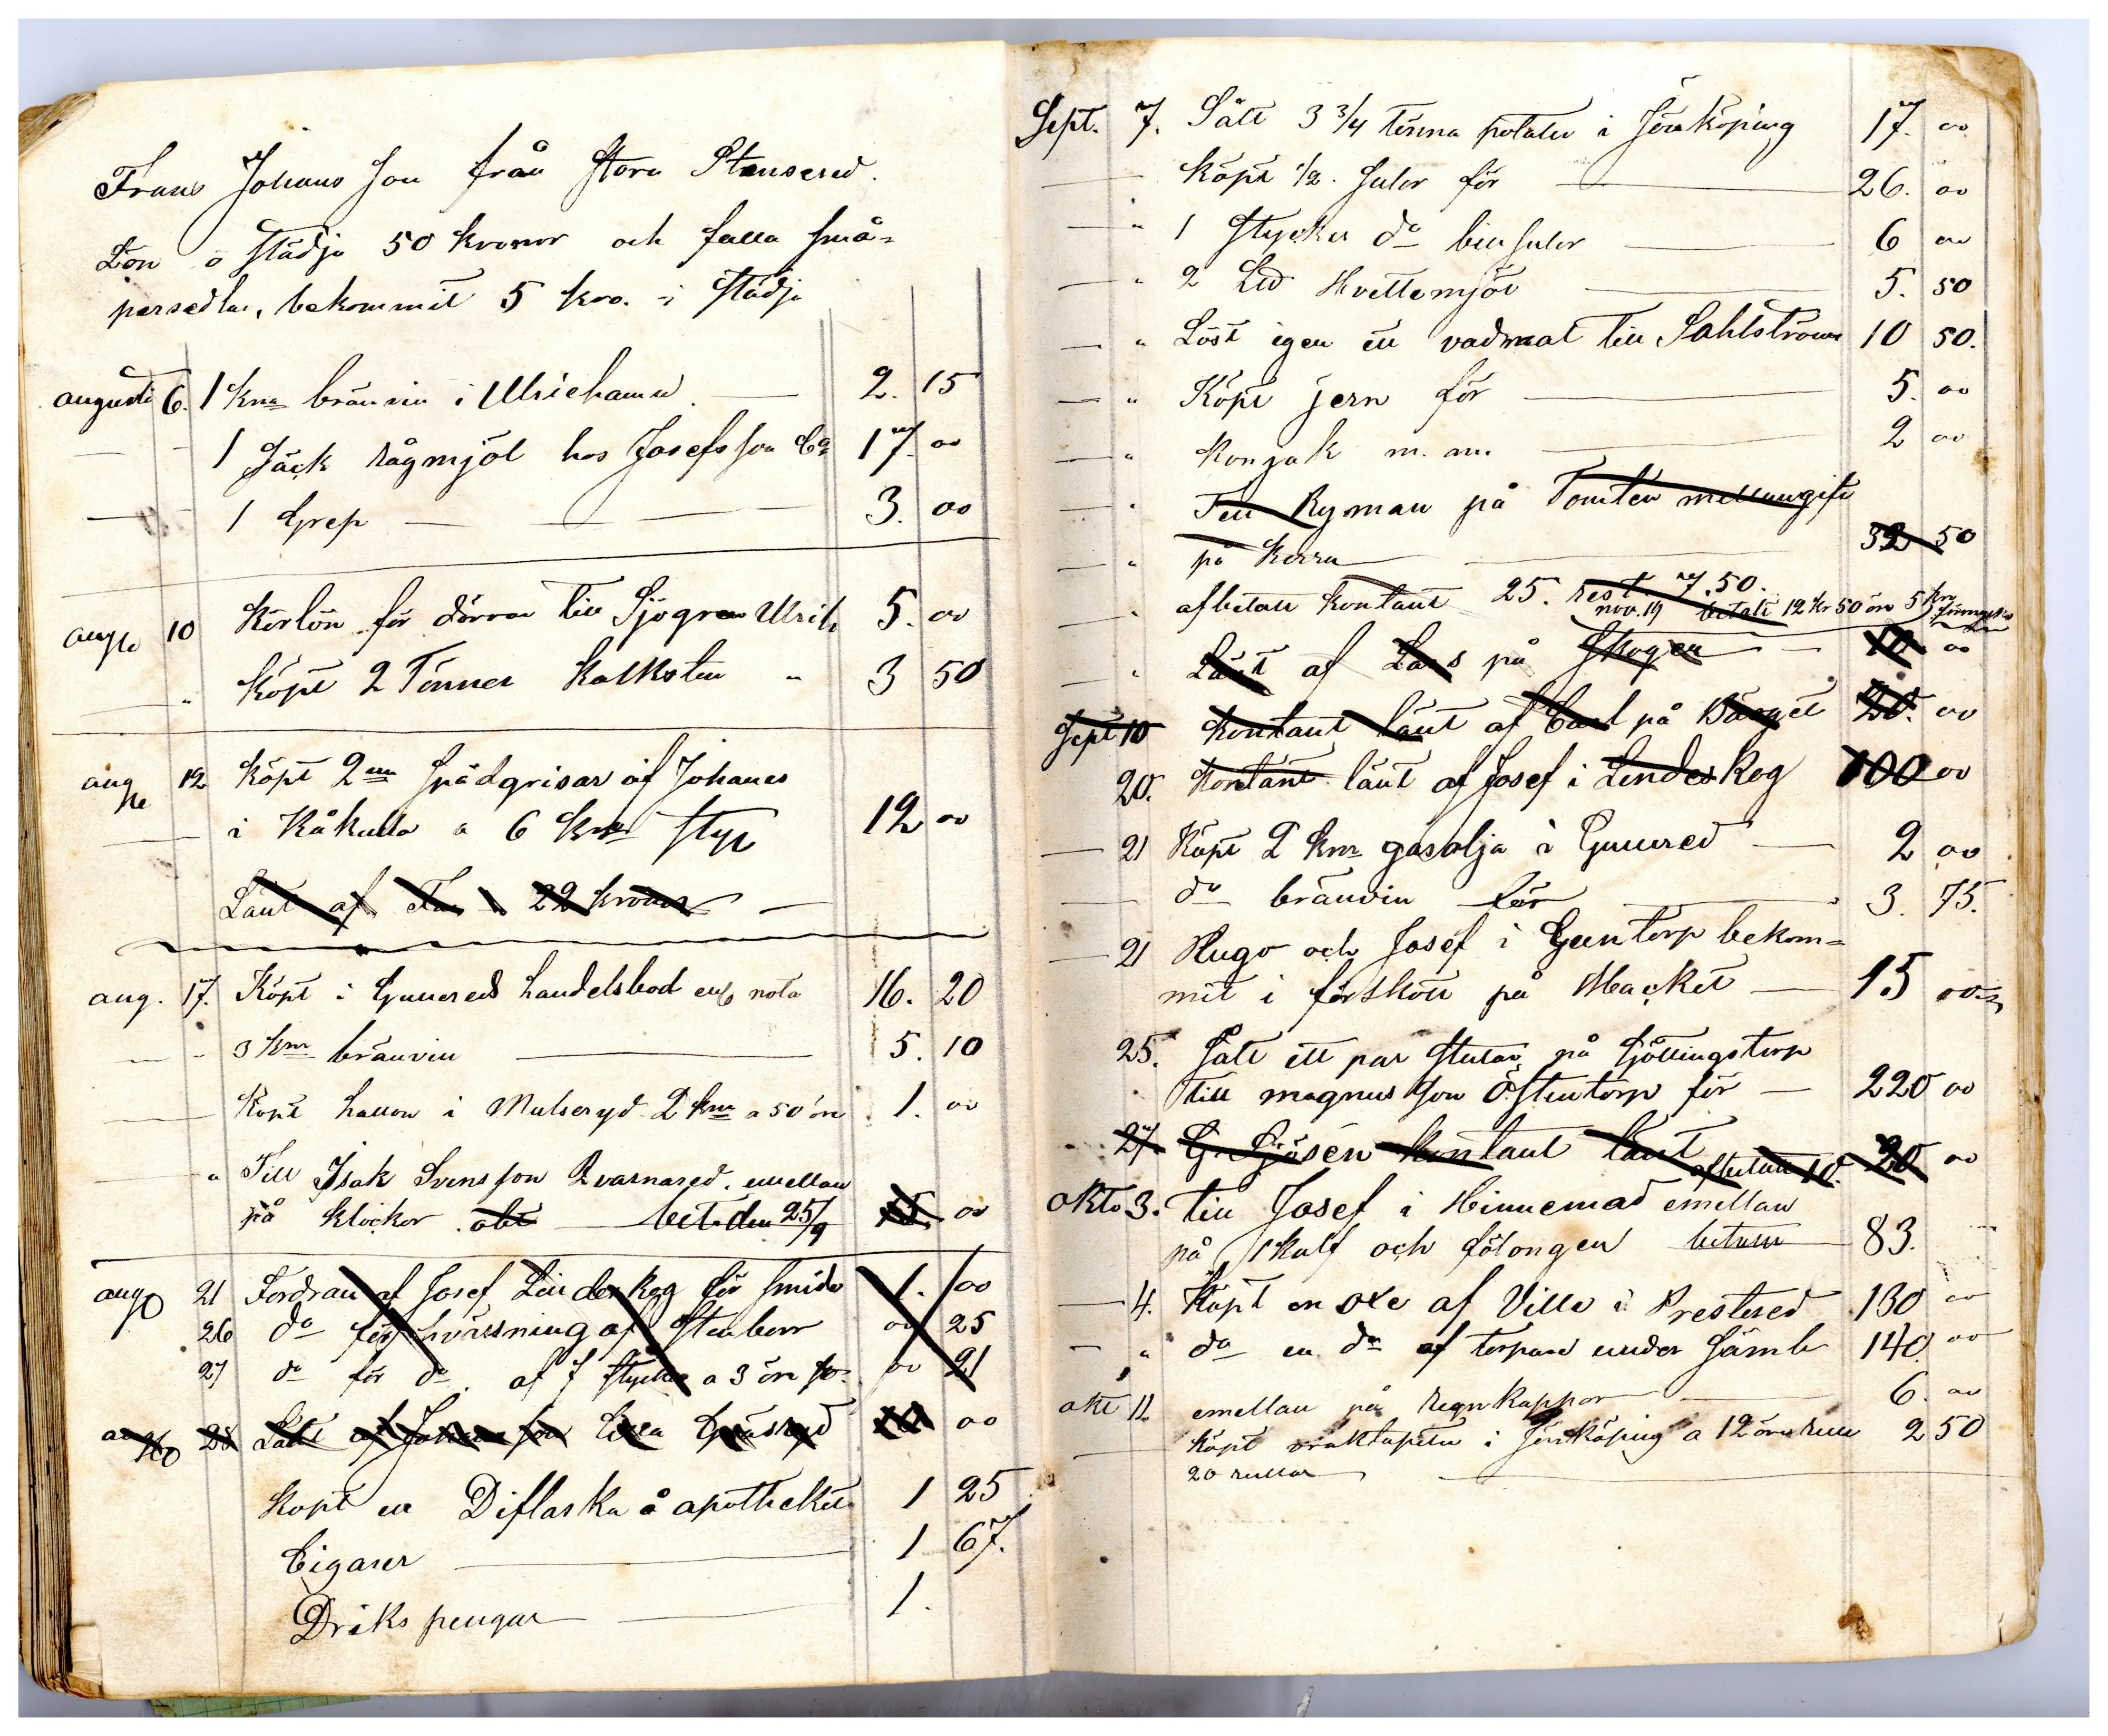 Frans Johans son från Stora Stensered.
Lön o städja 50 kronor och fulla små-
persedlar, bekommit 5 kro. i städja
augusti 6. 1 kna bränvin i Ulricehamn — 2. 15
— 1 säck rågmjöl hos Josefsson Co 17. 00
— 1 Grep — 3. 00
aug 10 Körlön för dörrar till Sjögren Ulrih 5. 00
" köpt 2 Tönner kalksten " 3 50
aug 12 köpt 2 spädgrisar af Johanes
i Råkulla a 6 kr styc 12 00
Lånt af 22 kronor —
aug. 17. Köpt i Gunnereds handelsbod enl nota 16. 20
— 3 knr bränvin — 5. 10
— Köpt hallon i Mulseryd 2 knr a 50 öre 1. 00
— " Till Isak Svensson Kvarnared. emellan
på klockor bet. den 25/9 15. 00
aug 21 Fordran af Josef Lindeskog för smide 1. 00
26 do för hväsning af stenborr 00 25
27 do för do. af 7 stycken a 3 öre st. 00 21
28 Lånt af Johansson 00
köpt en Diflaska å apotheket 1 25
Cigarer — 1 67.
Driks pengar — 1.
Sept. 7. Sålt 3 3/4 tönna potater i Jönköping 17. 00
— köpt 1/2. sulor för — 26. 00
— " 1 stycken do binsulor — 6 00
— " 2 Lld Hvettemjöl — 5. 50
— " Löst igen ett vadmal till Sahlströms 10 50.
— " Köpt jern för — 5. 00
— " konjak m. m. — 2 00
— " Till Ryman på Tomten mellangift
— " på kerra — 32 50
— " afbetalt kontant 25. rest. 7.50.
nov. 19 betalt 12 kr 50 öre 5 kr
— " Lånt af Lars på Skogen — 10 00
Sept 10 kontant lånt af Carl på Bärget 20. 00
20. kontant lånt af Josef i Lindeskog 100 00
— 21 Köpt 2 knr gasolja i Gunnred — 2 00
— do bränvin för — 3. 75.
— 21 Hugo och Josef i Guntorp bekom-
mit i förskott på Macket — 15 00
25. Sålt ett par stutar på Sjöttingstorp
till magnusson Östentorp för — 220 00
27 G. Sjösén kontant lånt afbetalt 10. 20 00
okto 3. till Josef i Hinnemad emellan
på 1 kalf och fölongen betalt 83.
— 4. Köpt en oxe af Ville i Prestered 130 00
— " do en do af torpare under Sämb 140 00
okt 11 emellan på regnkappor — 6. 00
— köpt vraktapeter i Jönköping a 12 öre rulle 2 50
20 rullar —